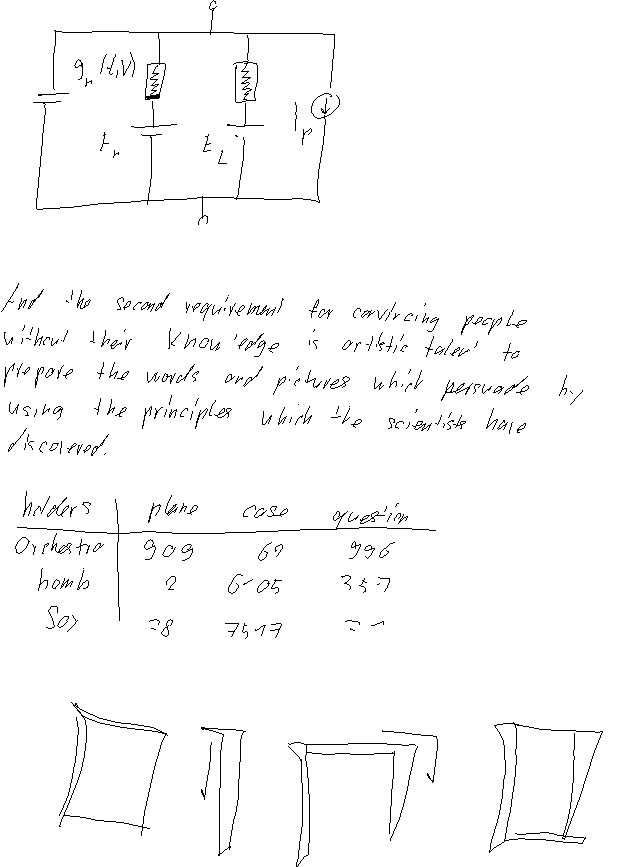 g_n (t,V)
E_n
E_L
I_p
And the second requirement for convincing people
without their knowledge is artistic talent to
prepare the words and pictures which persuade by
using the principles which the scientists have
discovered.
holders plane case question
Orchestra 909 996
bomb 2 357
Soy